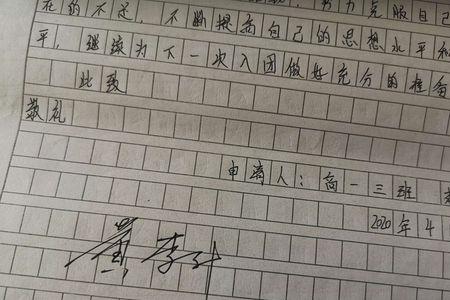 在的不足，不断提高自己的思想水平和
平，继续为下一次入团做好充分的准备
此致
敬礼
申请人：高一三班
2020年4